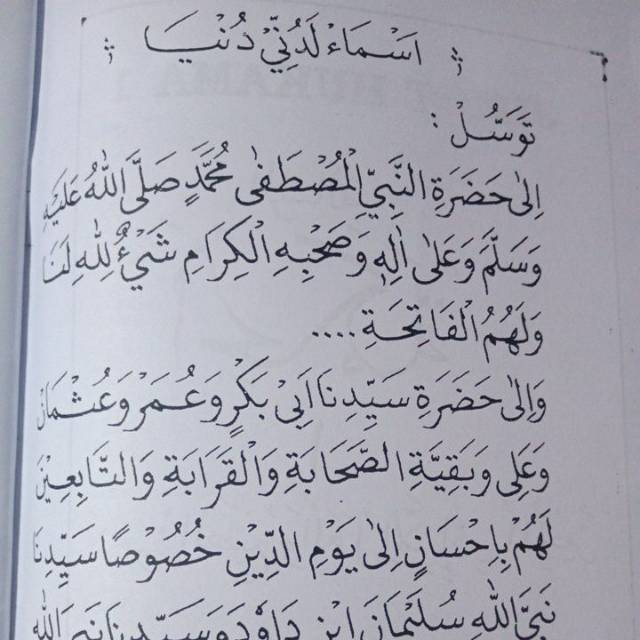 اَسْمَاءْ لَدُنِّيْ دُنْيَا
تَوَسُّلْ :
اِلٰى حَضَرَةِ النَّبِيِّ الْمُصْطَفٰى مُحَمَّدٍ صَلَّى اللهُ عَلَيْهِ
وَسَلَّمَ وَعَلٰى اٰلِهٖ وَصَحْبِهِ الْكِرَامِ شَيْءٌ لِلّٰهِ لَنَا
وَلَهُمُ الْفَاتِحَةِ ....
وَاِلٰى حَضَرَةِ سَيِّدِنَا اَبِيْ بَكْرٍ وَعُمَرْ وَعُثْمَانْ
وَعَلِى وَبَقِيَّةِ الصَّحَابَةِ وَالْقَرَابَةِ وَالتَّابِعِيْنَ
لَهُمْ بِاِحْسَانٍ اِلٰى يَوْمِ الدِّيْنِ خُصُوْصًا سَيِّدِنَا
نَبِيَّ اللهِ سُلَيْمَانَ ابْنِ دَاوُدَ وَسَيِّدِنَا نَبِيَ اللهِ